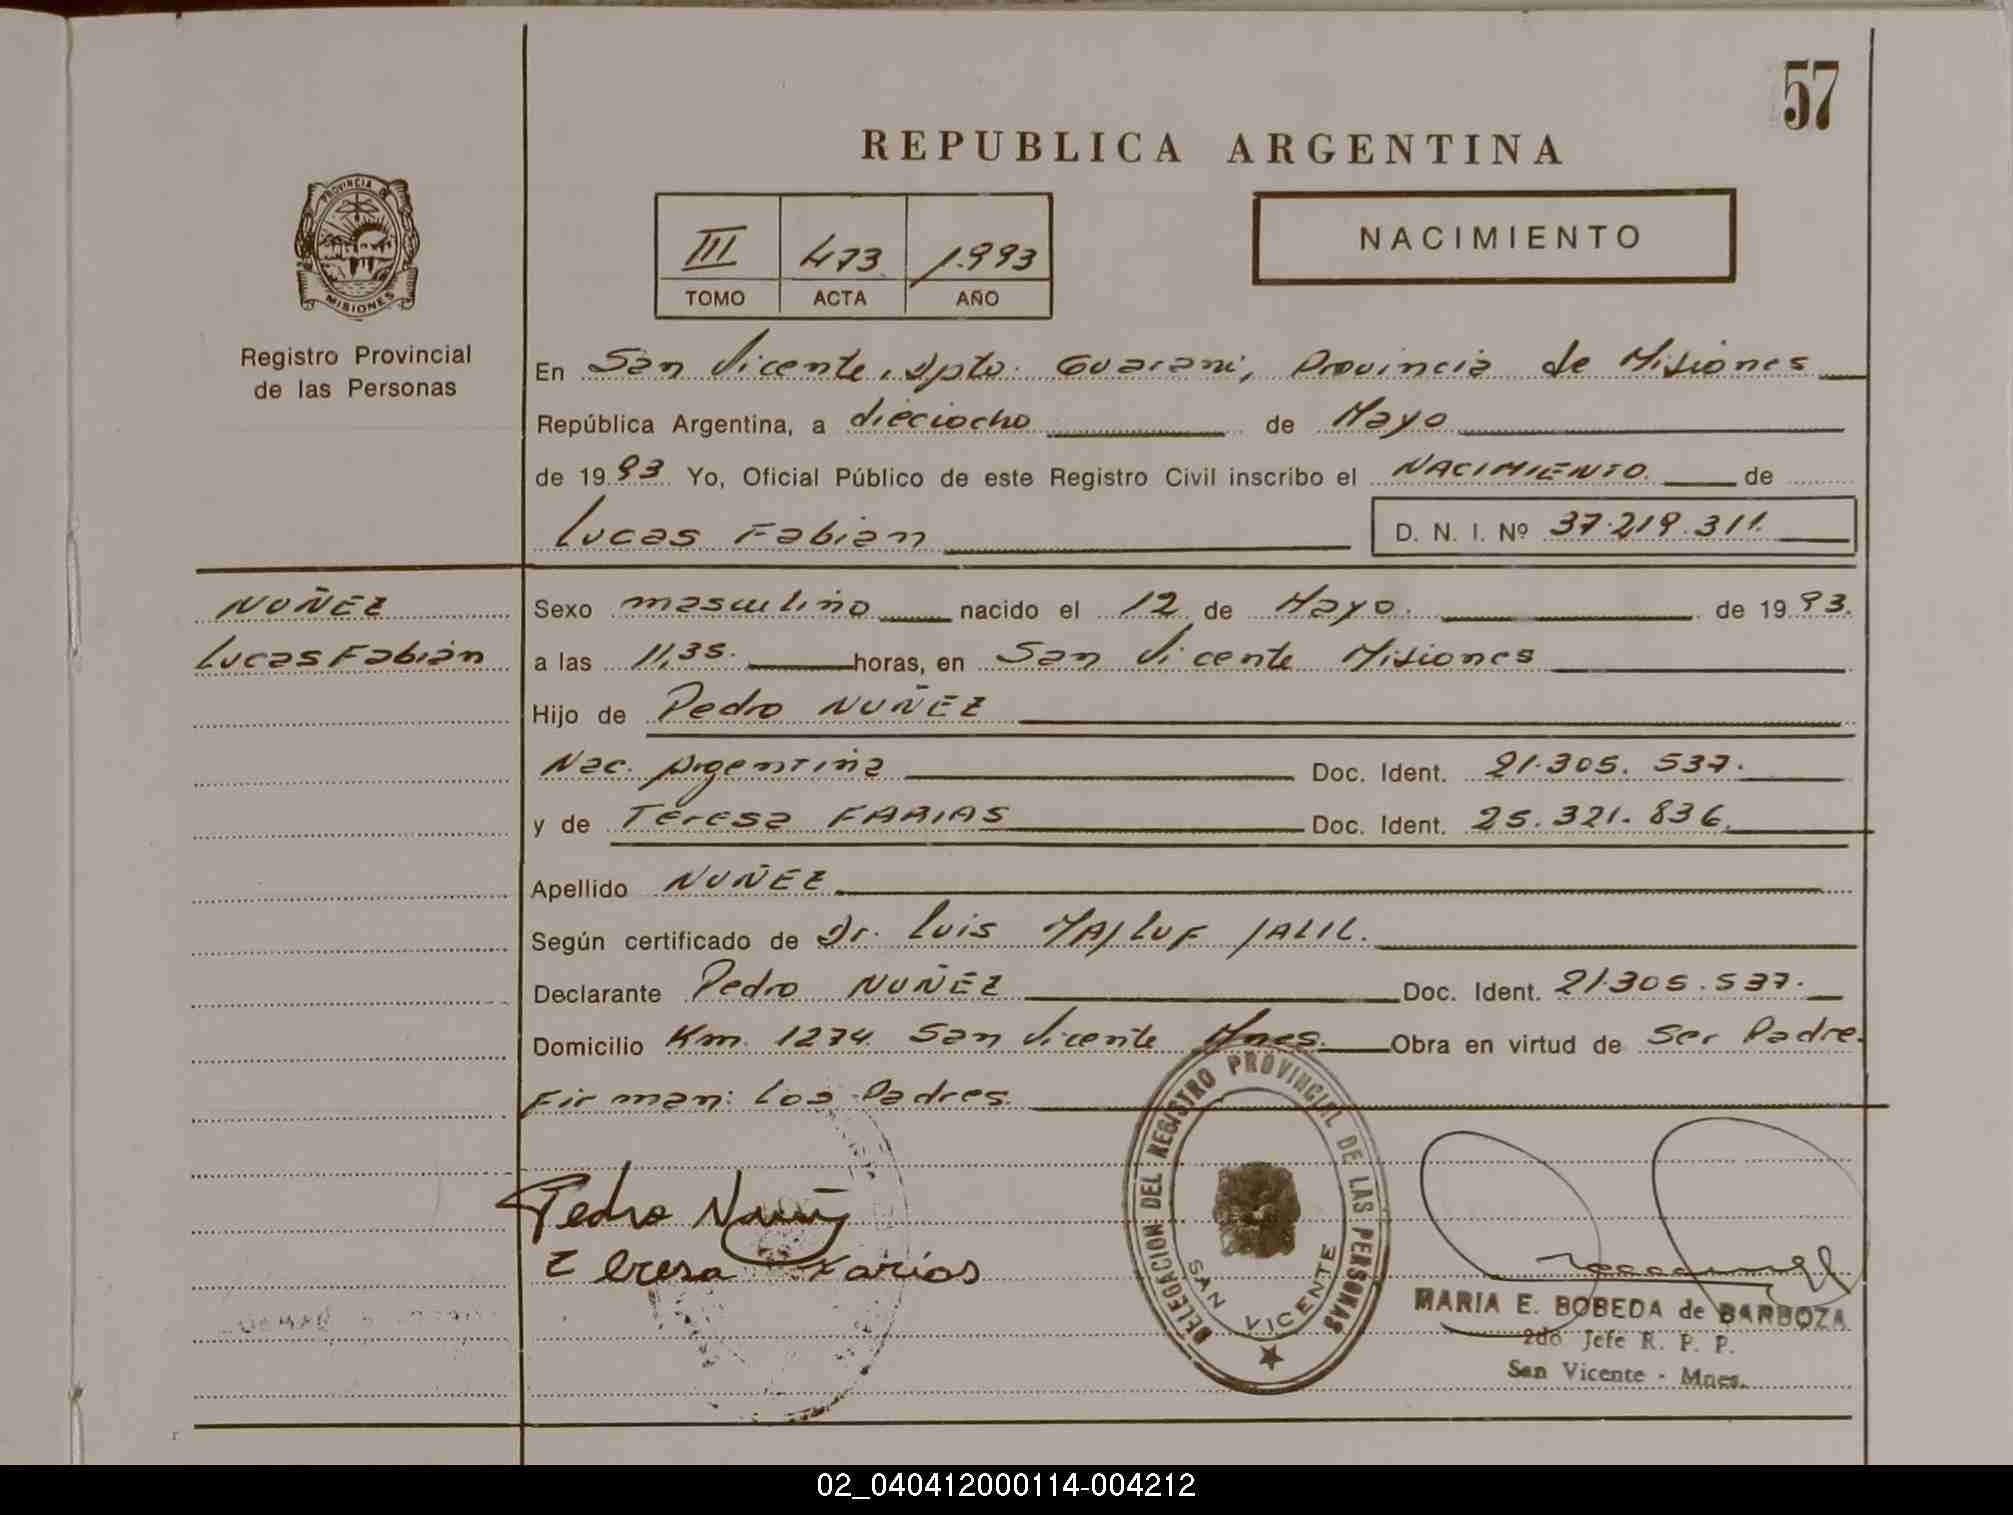 57
REPUBLICA ARGENTINA
PROVINCIA DE
MISIONES
Registro Provincial
de las Personas
III 473 1.993
TOMO ACTA AÑO
NACIMIENTO
En San Vicente, Dpto. Guarani, Provincia de Misiones
República Argentina, a dieciocho de Mayo
de 1993 Yo, Oficial Público de este Registro Civil inscribo el NACIMIENTO. de
Lucas Fabian D. N. I. Nº 37.219.311.
NUÑEZ
Lucas Fabián
Sexo masculino nacido el 12 de Mayo. de 1993.
a las 11,35. horas, en San Vicente Misiones
Hijo de Pedro NUÑEZ
Nac. Argentina Doc. Ident. 21.305.537.
y de Teresa FARIAS Doc. Ident. 25.321.836.
Apellido NUÑEZ
Según certificado de Dr. Luis MAJLUF JALIL.
Declarante Pedro NUÑEZ Doc. Ident. 21.305.537.
Domicilio Km. 1274. San Vicente Mnes. Obra en virtud de Ser Padre.
Firman: Los Padres.
Pedro Nuñez
Teresa Farias
DELEGACION DEL REGISTRO PROVINCIAL DE LAS PERSONAS
SAN VICENTE
MARIA E. BOBEDA de BARBOZA
2do Jefe R. P. P.
San Vicente - Mnes.
02_040412000114-004212